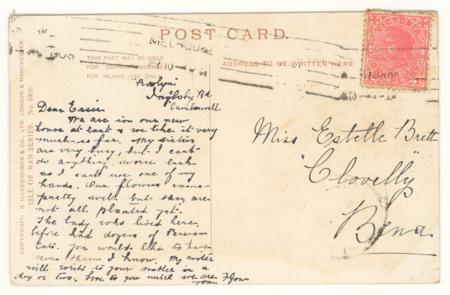 POST CARD.
THIS PART MAY BE USED
FOR
FOR INLAND USE ONLY
ADDRESS TO BE WRITTEN HERE
MELBOURNE
VICTORIA
COPYRIGHT. S. HILDESHEIMER & CO. LTD. LONDON & MANCHESTER
ISLE OF MAN SERIES. No.
Ingleby Rd
Camberwell
Dear Essie
We are in our new
house at last & we like it very
much so far. My sisters
are very busy, but I can't
do anything, worse luck
as I can't use one of my
hands. Our flowers came
pretty well but they are
not all planted yet.
The lady who lived here
before had dozens of Persian
cats. you would like to have
seen them I know. My mother
will write to your mother in a
day or two, love to you
Miss Estelle Brett
"Clovelly"
Bena